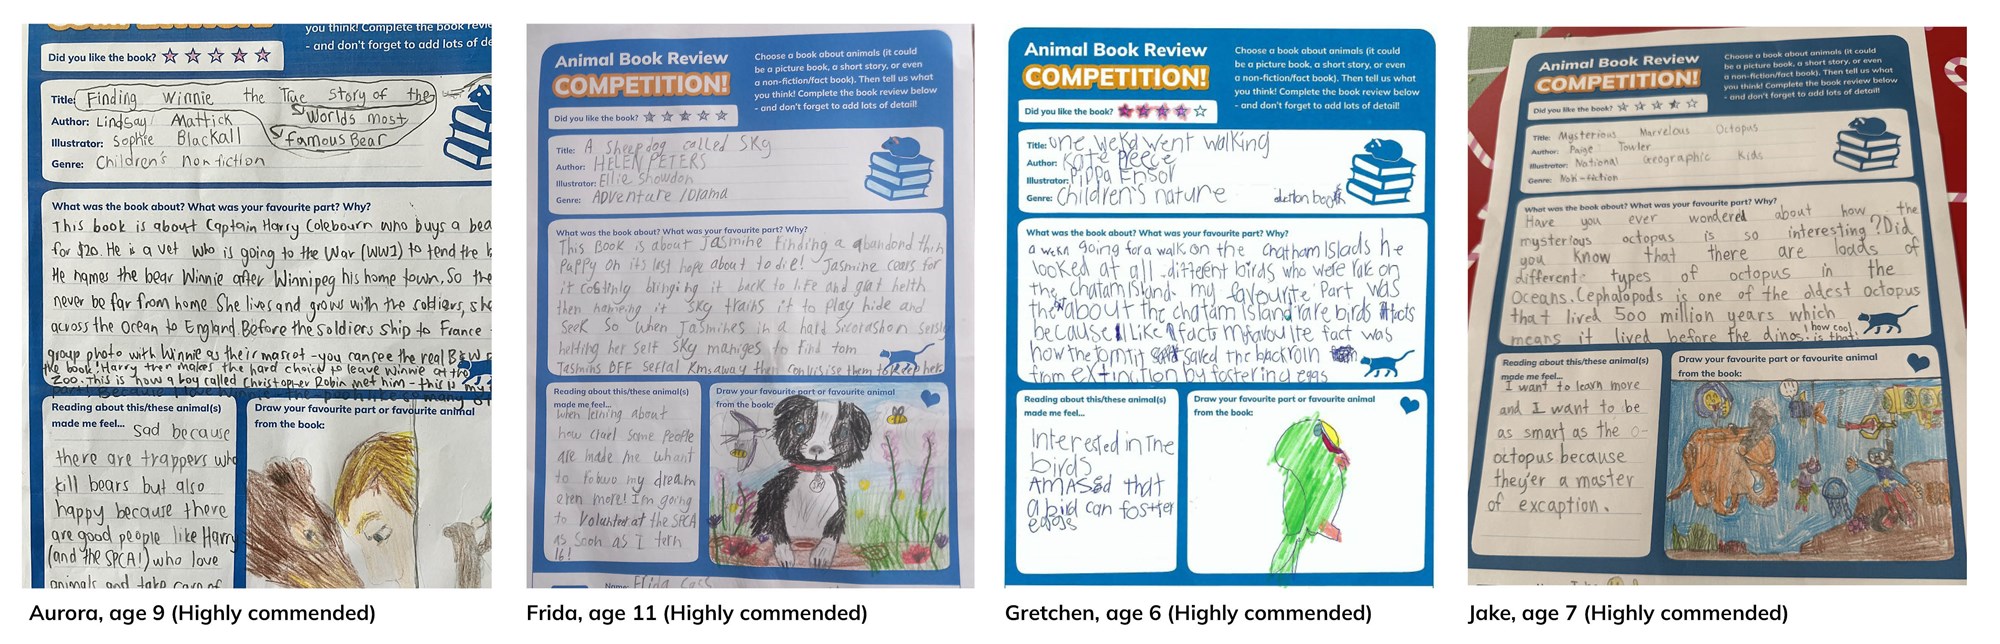 you think! Complete the book revie
- and don't forget to add lots of de
Did you like the book?
Title: Finding Winnie the True Story of the
Worlds most
famous Bear
Author: Lindsay Mattick
Illustrator: Sophie Blackall
Genre: Children's non fiction
What was the book about? What was your favourite part? Why?
This book is about Captain Harry Colebourn who buys a bea
for $20. He is a vet who is going to the War (WW1) to tend the h
He names the bear Winnie after Winnipeg his home town, So the
never be far from home She lives and grows with the soldiers, she
across the Ocean to England. Before the soldiers ship to France
group photo with Winnie as their mascot - you can see the real B&W
the book! Harry then makes the hard choice to leave Winnie at the
Zoo. This is how a boy called Christopher Robin met him - this is my
part! Because I love Winnie - the - pooh like so many
Reading about this/these animal(s)
made me feel... Sad because
there are trappers who
kill bears but also
happy because there
are good people like Harry
(and the SPCA!) who love
animals and take care of
Draw your favourite part or favourite animal
from the book:
Aurora, age 9 (Highly commended)
Animal Book Review
COMPETITION!
Choose a book about animals (it could
be a picture book, a short story, or even
a non-fiction/fact book). Then tell us what
you think! Complete the book review below
- and don't forget to add lots of detail!
Did you like the book?
Title: A Sheepdog called Sky
Author: HELEN PETERS
Illustrator: Ellie Snowdon
Genre: ADventure /Drama
What was the book about? What was your favourite part? Why?
This Book is about Jasmine Finding a abandond thin
Puppy on its last hope about to die! Jasmine cears for
it costinly bringing it back to life and grat helth
then nameing it Sky trains it to play hide and
Seek So when Jasmines in a hard
helting her self Sky maniges to find tom
Jasmins BFF Serfal Kms away then
Reading about this/these animal(s)
made me feel...
when lerning about
how cruel some people
are made me whant
to folowo my dream
even more! I'm going
to Volunteer at the SPCA
as soon as I tern
16!
Draw your favourite part or favourite animal
from the book:
Name: Frida
Frida, age 11 (Highly commended)
Animal Book Review
COMPETITION!
Choose a book about animals (it could
be a picture book, a short story, or even
a non-fiction/fact book). Then tell us what
you think! Complete the book review below
- and don't forget to add lots of detail!
Did you like the book?
Title: one weka went walking
Author: Kate Preece
Illustrator: Pippa Ensor
Genre: Children's nature
What was the book about? What was your favourite part? Why?
a weka going for a walk on the Chatham Islads he
looked at all different birds who were rare on
the chatam island. my favourite part was
the about the chatam Island rare birds facts
because I Like facts My favourite fact was
how the tomtit saved the blackroin
from extinction by fostering eggs
Reading about this/these animal(s)
made me feel...
Interested in The
birds
AMASed that
a bird can foster
eggs
Draw your favourite part or favourite animal
from the book:
Gretchen, age 6 (Highly commended)
Animal Book Review
COMPETITION!
Choose a book about animals (it could
be a picture book, a short story, or even
a non-fiction/fact book). Then tell us what
you think! Complete the book review below
- and don't forget to add lots of detail!
Did you like the book?
Title: Mysterious Marvelous Octopus
Author: Paige Towler
Illustrator: National Geographic Kids
Genre: Non-fiction
What was the book about? What was your favourite part? Why?
Have you ever wondered about how the
mysterious octopus is so interesting? Did
you know that there are loads of
different types of octopus in the
Oceans. Cephalopods is one of the oldest octopus
that lived 500 million years which
means it lived before the dinos! how cool
is that!
Reading about this/these animal(s)
made me feel...
I want to learn more
and I want to be
as smart as the o-
octopus because
they'er a master
of excaption.
Draw your favourite part or favourite animal
from the book:
Jake, age 7 (Highly commended)